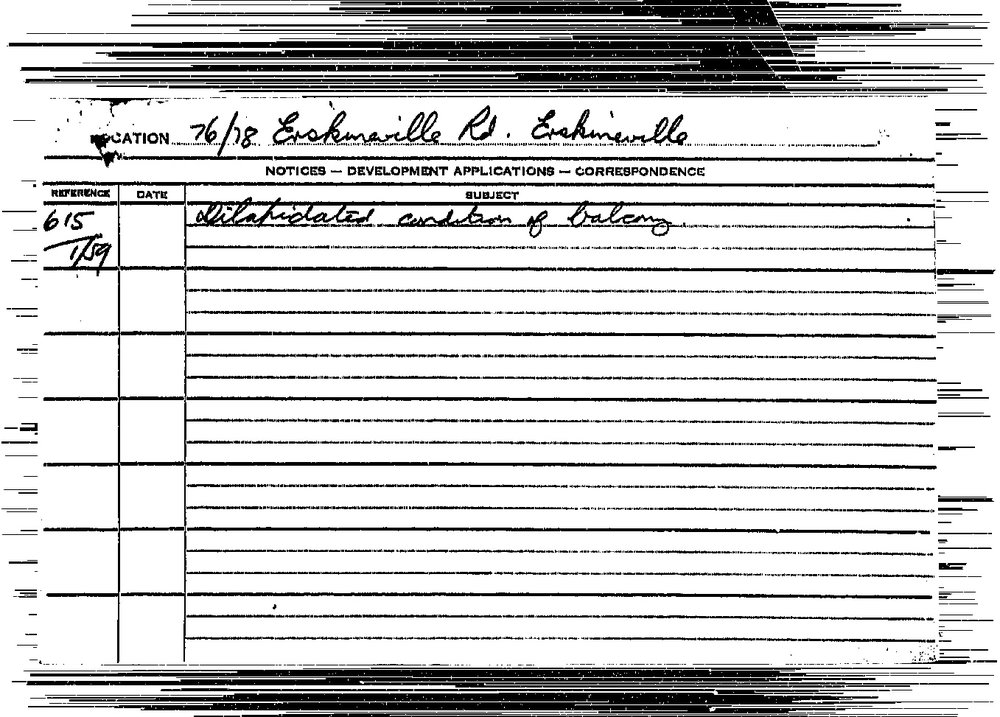 LOCATION 76/78 Erskineville Rd. Erskineville
NOTICES — DEVELOPMENT APPLICATIONS — CORRESPONDENCE
REFERENCE DATE SUBJECT
615 Dilapidated condition of balcony.
1/59